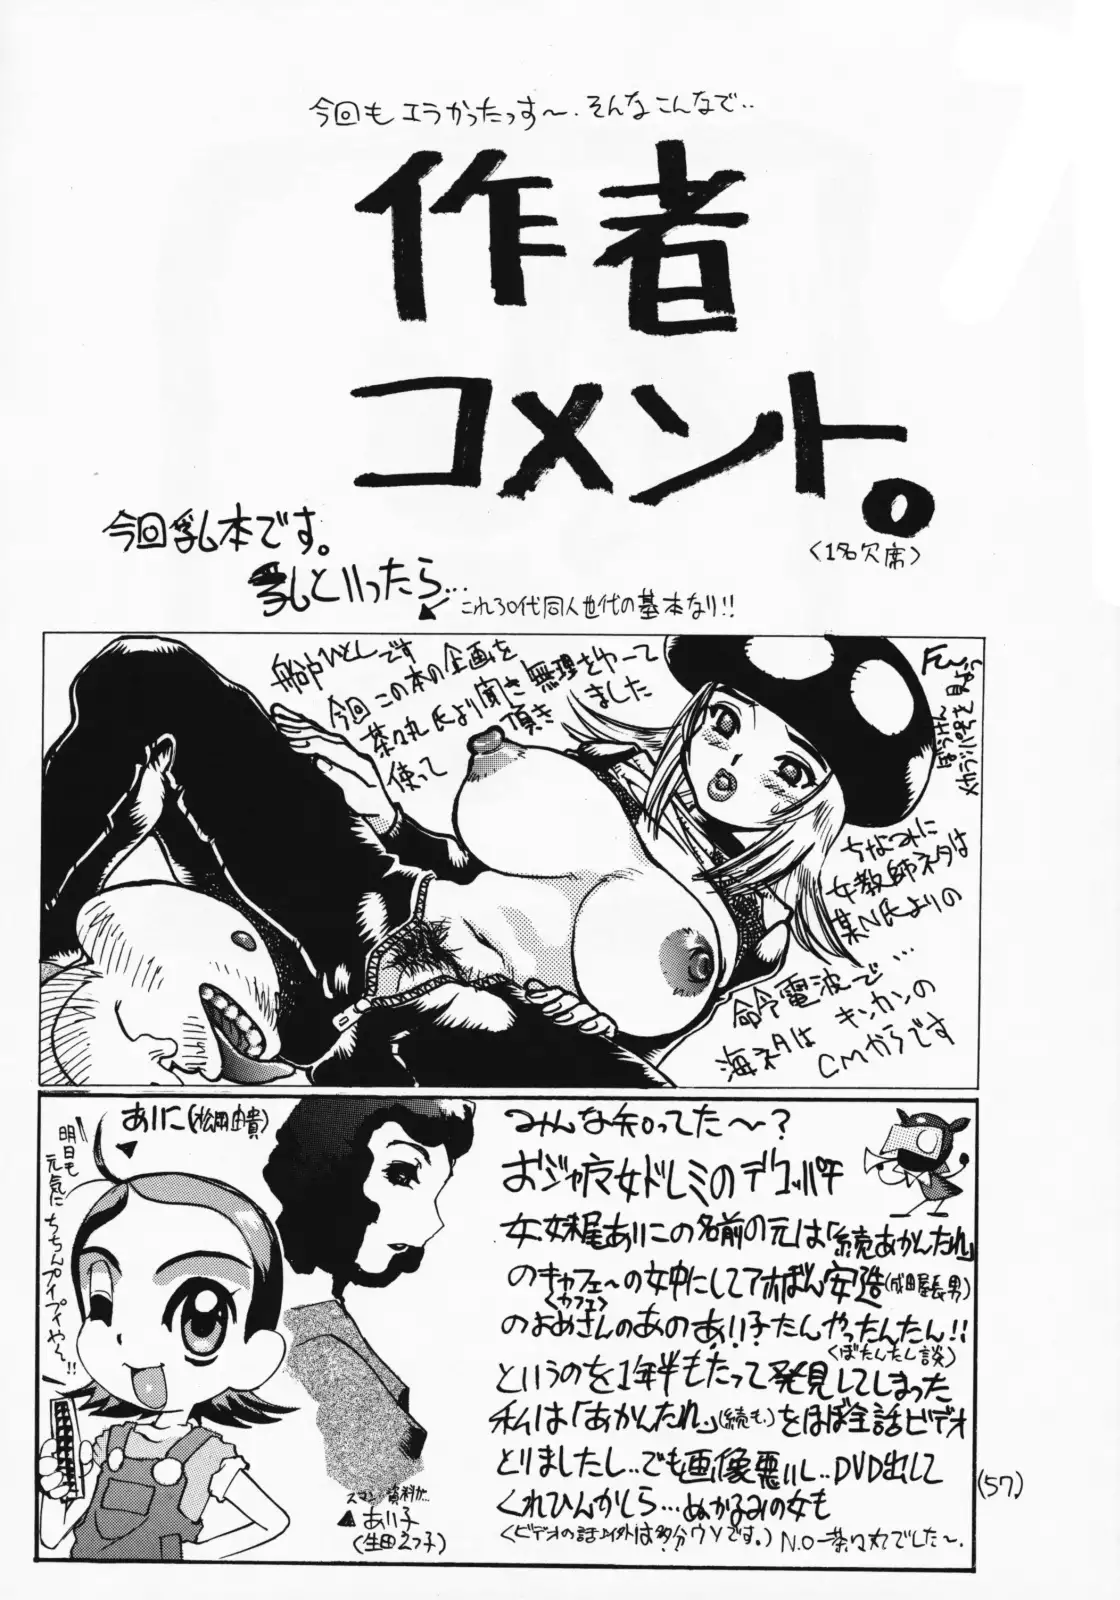 今回も エラかったっす〜.そんなこんなで..
作者
コメント。
〈1名欠席〉
今回乳本です。
乳といったら...
これ30代同人世代の基本なり!!
船戸ひとしです
今回この本の企画を
茶々丸氏より聞き
使って
頂き
無理をやーって
ました
ちなみに
女教師ネタは
某N氏よりの
命令電波で...
海ネタは キンカンの
CMからです
あいこ(松岡由貴)
明日も
元気に
ちちんプイプイやで!!
みんな知ってた〜?
おジャ魔女ドレミのデコッパチ
女、妹尾あいこの名前の元は「続あかんたれ」
のキャフェ〜の女中にしてアホぼん安造(成田屋長男)
〈カフェ〉
のよめさんのあの あい子たんやったんたん!!
〈ぼたんたし談〉
というのを1年半もたって発見してしまった
私は「あかんたれ」(続も)をほぼ全話ビデオ
とりましたし..でも画像悪いし..DVD出して
くれひんかしら...ぬかるみの女も
〈ビデオの話以外は多分ウソです。〉 N.O-茶々丸でした〜.
スマン資料が...
あい子
(生田えつ子)
(57)